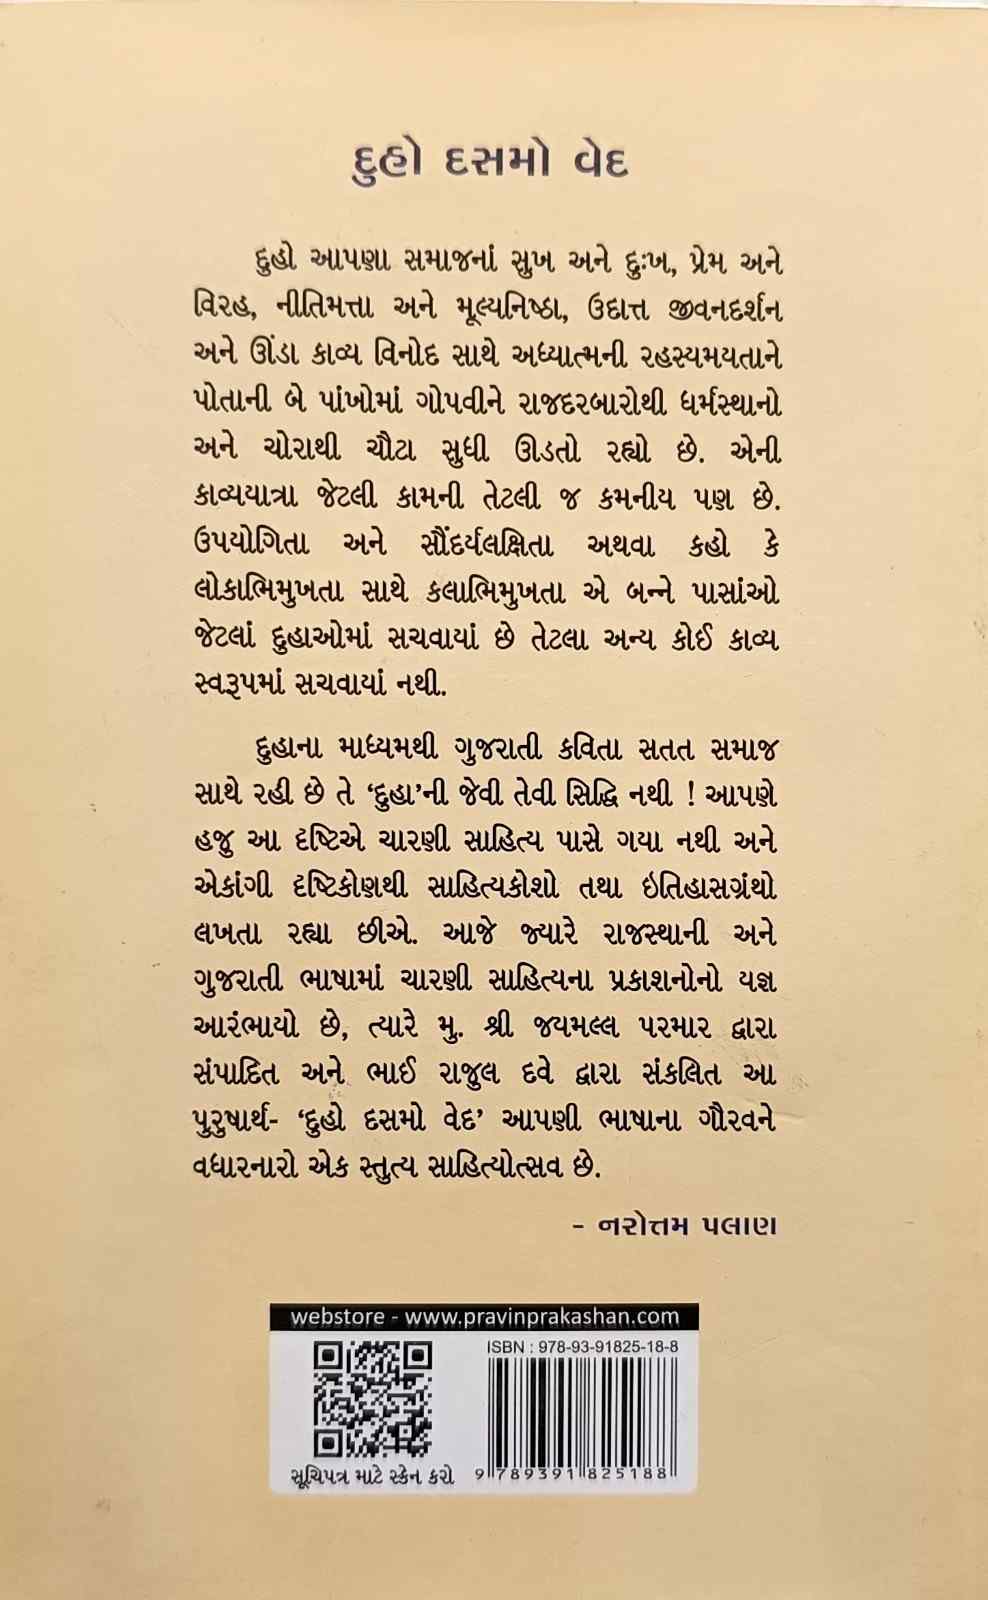 દુહો દસમો વેદ
દુહો આપણા સમાજનાં સુખ અને દુઃખ, પ્રેમ અને
વિરહ, નીતિમત્તા અને મૂલ્યનિષ્ઠા, ઉદાત્ત જીવનદર્શન
અને ઊંડા કાવ્ય વિનોદ સાથે અધ્યાત્મની રહસ્યમયતાને
પોતાની બે પાંખોમાં ગોપવીને રાજદરબારોથી ધર્મસ્થાનો
અને ચોરાથી ચૌટા સુધી ઊડતો રહ્યો છે. એની
કાવ્યયાત્રા જેટલી કામની તેટલી જ કમનીય પણ છે.
ઉપયોગિતા અને સૌંદર્યલક્ષિતા અથવા કહો કે
લોકાભિમુખતા સાથે કલાભિમુખતા એ બન્ને પાસાંઓ
જેટલાં દુહાઓમાં સચવાયાં છે તેટલા અન્ય કોઈ કાવ્ય
સ્વરૂપમાં સચવાયાં નથી.
દુહાના માધ્યમથી ગુજરાતી કવિતા સતત સમાજ
સાથે રહી છે તે ‘દુહા’ની જેવી તેવી સિદ્ધિ નથી ! આપણે
હજુ આ દૃષ્ટિએ ચારણી સાહિત્ય પાસે ગયા નથી અને
એકાંગી દૃષ્ટિકોણથી સાહિત્યકોશો તથા ઇતિહાસગ્રંથો
લખતા રહ્યા છીએ. આજે જ્યારે રાજસ્થાની અને
ગુજરાતી ભાષામાં ચારણી સાહિત્યના પ્રકાશનોનો યજ્ઞ
આરંભાયો છે, ત્યારે મુ. શ્રી જયમલ્લ પરમાર દ્વારા
સંપાદિત અને ભાઈ રાજુલ દવે દ્વારા સંકલિત આ
પુરુષાર્થ- ‘દુહો દસમો વેદ’ આપણી ભાષાના ગૌરવને
વધારનારો એક સ્તુત્ય સાહિત્યોત્સવ છે.
- નરોત્તમ પલાણ
webstore - www.pravinprakashan.com
ISBN : 978-93-91825-18-8
સૂચિપત્ર માટે સ્કેન કરો
9 789391 825188